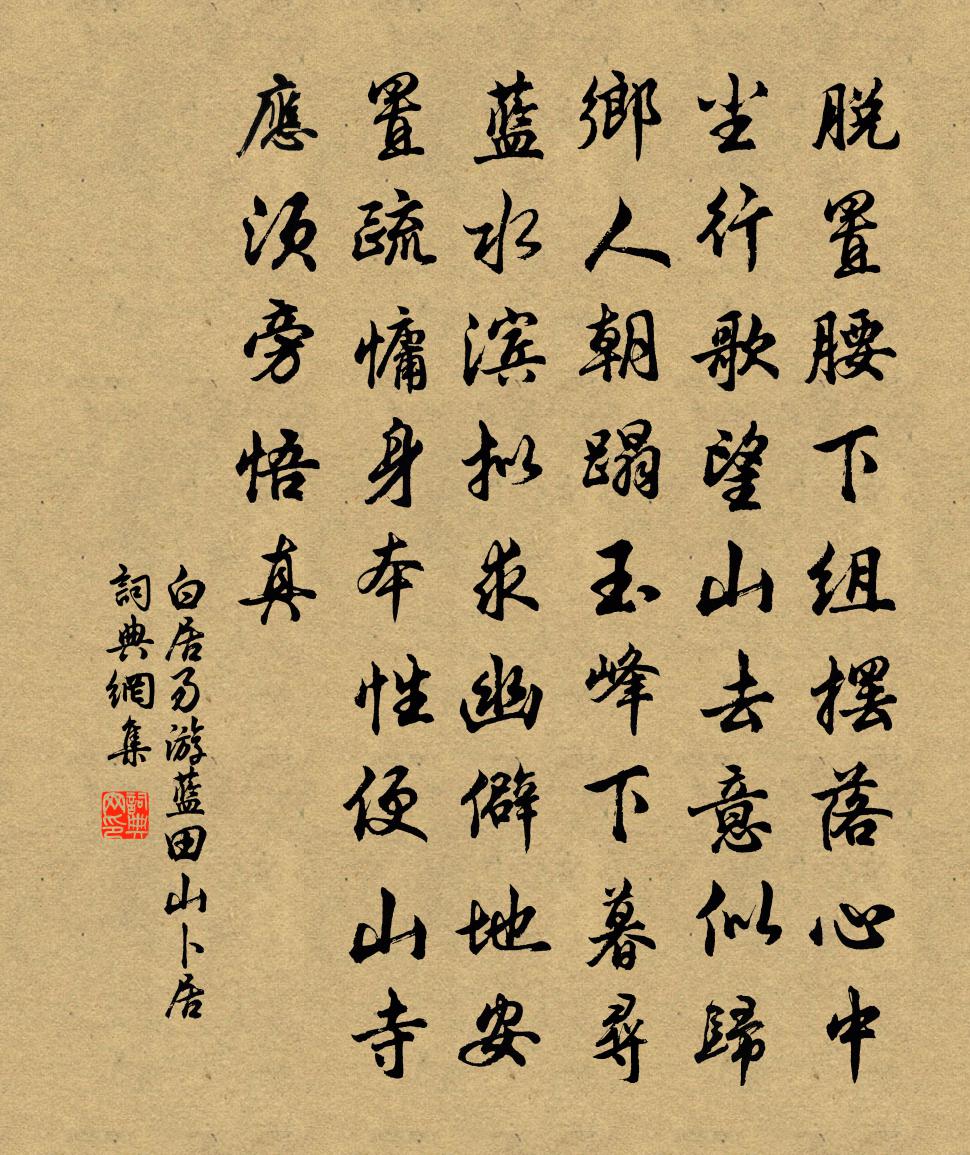 脱置腰下组摆落心中
尘行歌望山去意似歸
鄉人朝蹋玉峰下暮尋
藍水滨拟求幽僻地安
置疏慵身本性便山寺
應须旁悟真
白居易游藍田山卜居
詞典網集
詞典网印